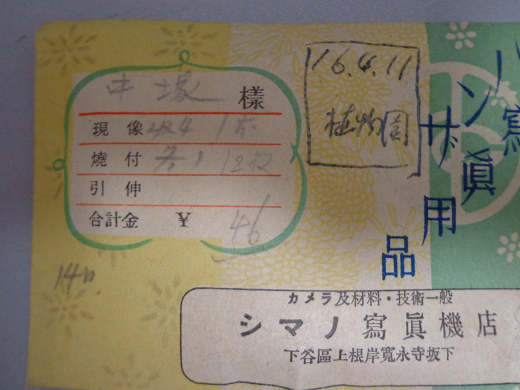 中塚 様
現像 1本
焼付 各1 12枚
引伸
合計金 ¥ 46
14日
16.4.11
植物園
ハンザ
寫眞用品
カメラ及材料・技術一般
シマノ寫眞機店
下谷區上根岸寛永寺坂下